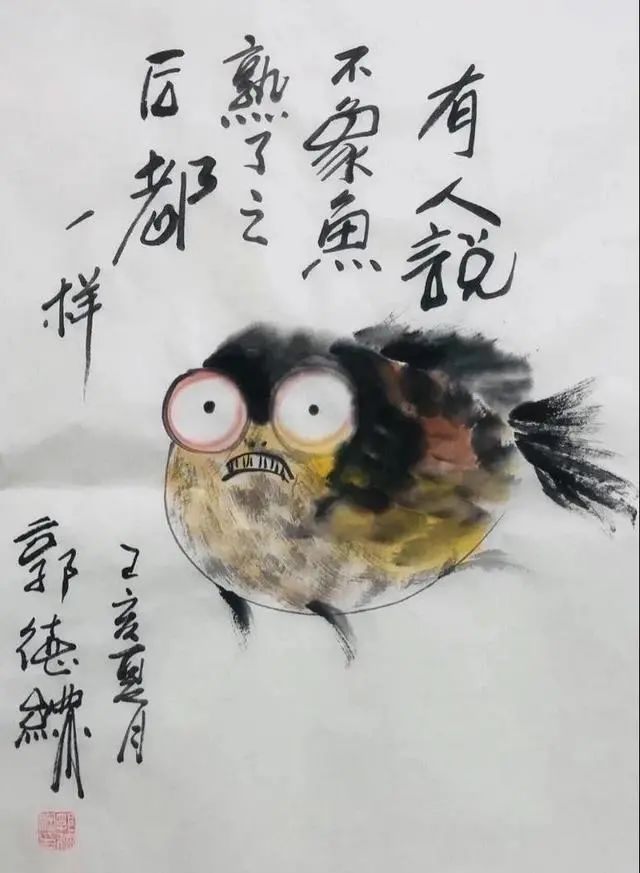 有人説
不象魚
熟了之
后都
一样
王亥夏月
郭德綱